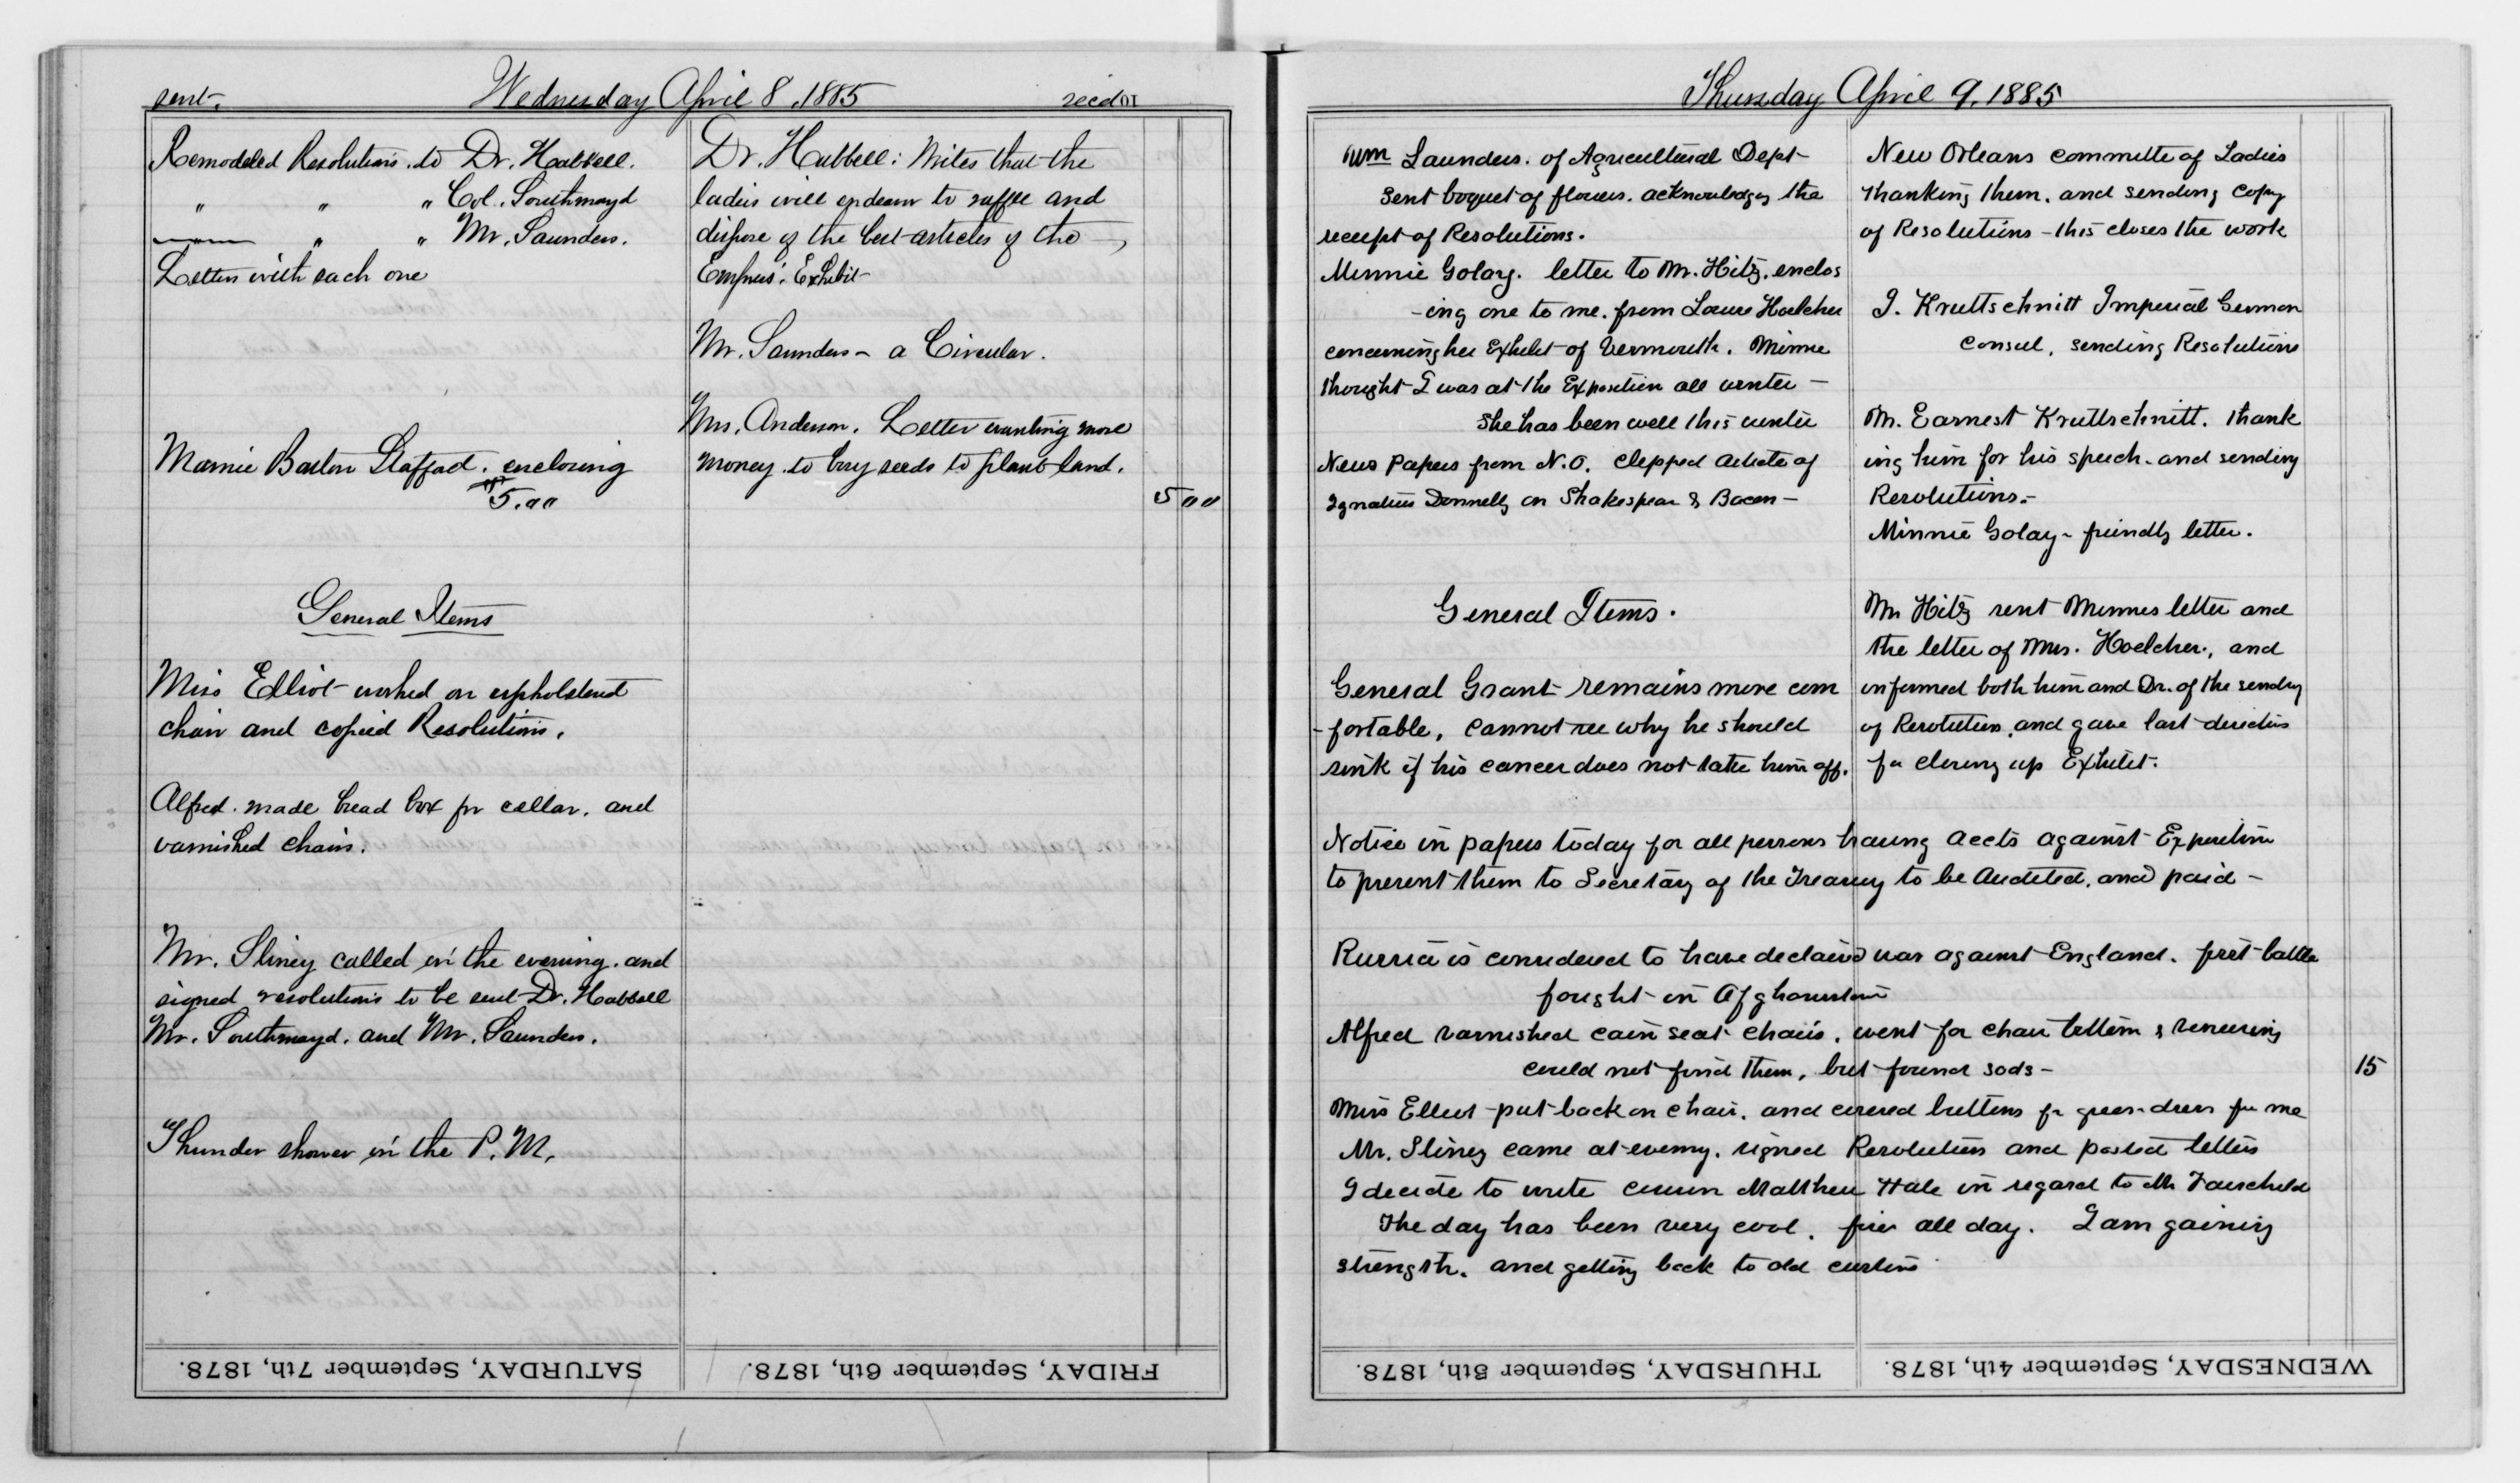 sent.
Wednesday April 8, 1885
recd
Remodeled Resolutions. to Dr. Hubbell.
" " " Col. Southmayd
" " " Mr. Saunders.
Letters with each one
Mamie Barton Stafford. enclosing
5.00
General Items
Miss Elliot worked on upholstered
chair and copied Resolutions.
Alfred. made bread box for cellar. and
varnished chairs.
Mr. Sliney called in the evening. and
signed resolutions to be sent Dr. Hubbell
Mr. Southmayd. and Mr. Saunders.
Thunder shower in the P.M.
Dr. Hubbell: Writes that the
ladies will endeavor to raffle and
dispose of the best articles of the
Empress' Exhibit
Mr. Saunders - a Circular.
Mrs. Anderson. Letter wanting more
money. to buy seeds to plant land.
5 00
SATURDAY, September 7th, 1878.
FRIDAY, September 6th, 1878.
Thursday April 9, 1885
Wm Saunders. of Agricultural Dept-
sent boquet of flowers. acknowledges the
receipt of Resolutions.
Minnie Golay. letter to Mr. Hitz. enclos
-ing one to me. from Laura Hoelcher
concerning her Exhibit of Vermouth. Minnie
thought I was at the Exposition all winter -
She has been well this winter
News Papers from N.O. clipped article of
Ignatius Donnelly on Shakespear & Bacon -
General Items.
General Grant remains more com
-fortable, cannot see why he should
sink if his cancer does not take him off.
New Orleans committe of Ladies
thanking them. and sending copy
of Resolutions - this closes the work
J. Kruttschnitt Imperial German
Consul, sending Resolutions
Mr. Earnest Kruttschnitt. thank
ing him for his speech. and sending
Resolutions.-
Minnie Golay - friendly letter.
Mr Hitz sent Minnies letter and
the letter of Mrs. Hoelcher., and
informed both him and Dr. of the sending
of Resolutions, and gave last directions
for closing up Exhibit.
Notice in papers today for all persons having accts against Exposition
to present them to Secretary of the Treasury to be Audited. and paid -
Russia is considered to have declared war against England. first battle
fought in Afghanistan
Alfred varnished cain seat chairs. went for chair bottom & veneering
could not find them, but found sods -
15
Miss Elliot put back on chair. and covered buttons for green dress for me
Mr. Sliney came at evening. signed Resolutions and posted letters
I decide to write cousin Matthew Hale in regard to Mr Fairchild
The day has been very cool. fires all day. I am gaining
strength. and getting back to old
THURSDAY, September 5th, 1878.
WEDNESDAY, September 4th, 1878.